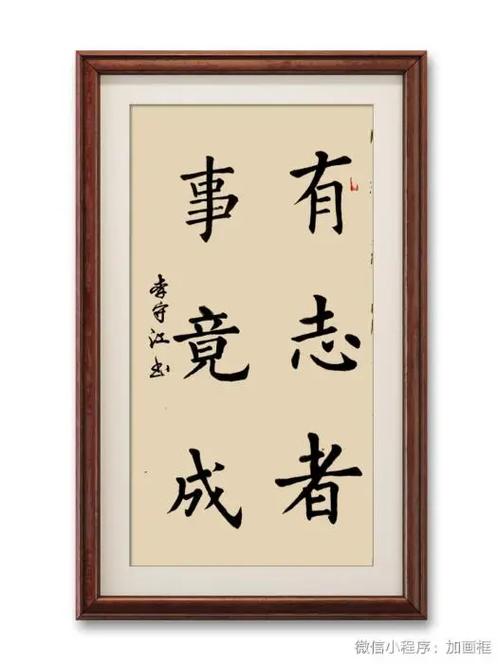 有志者
事竟成
李守江书
微信小程序：加画框